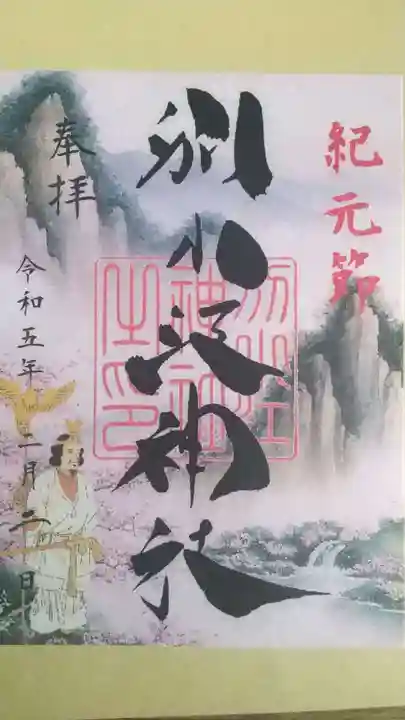 紀元節
別小江神社
別小江
神社
之印
奉拝
令和五年
二月二日